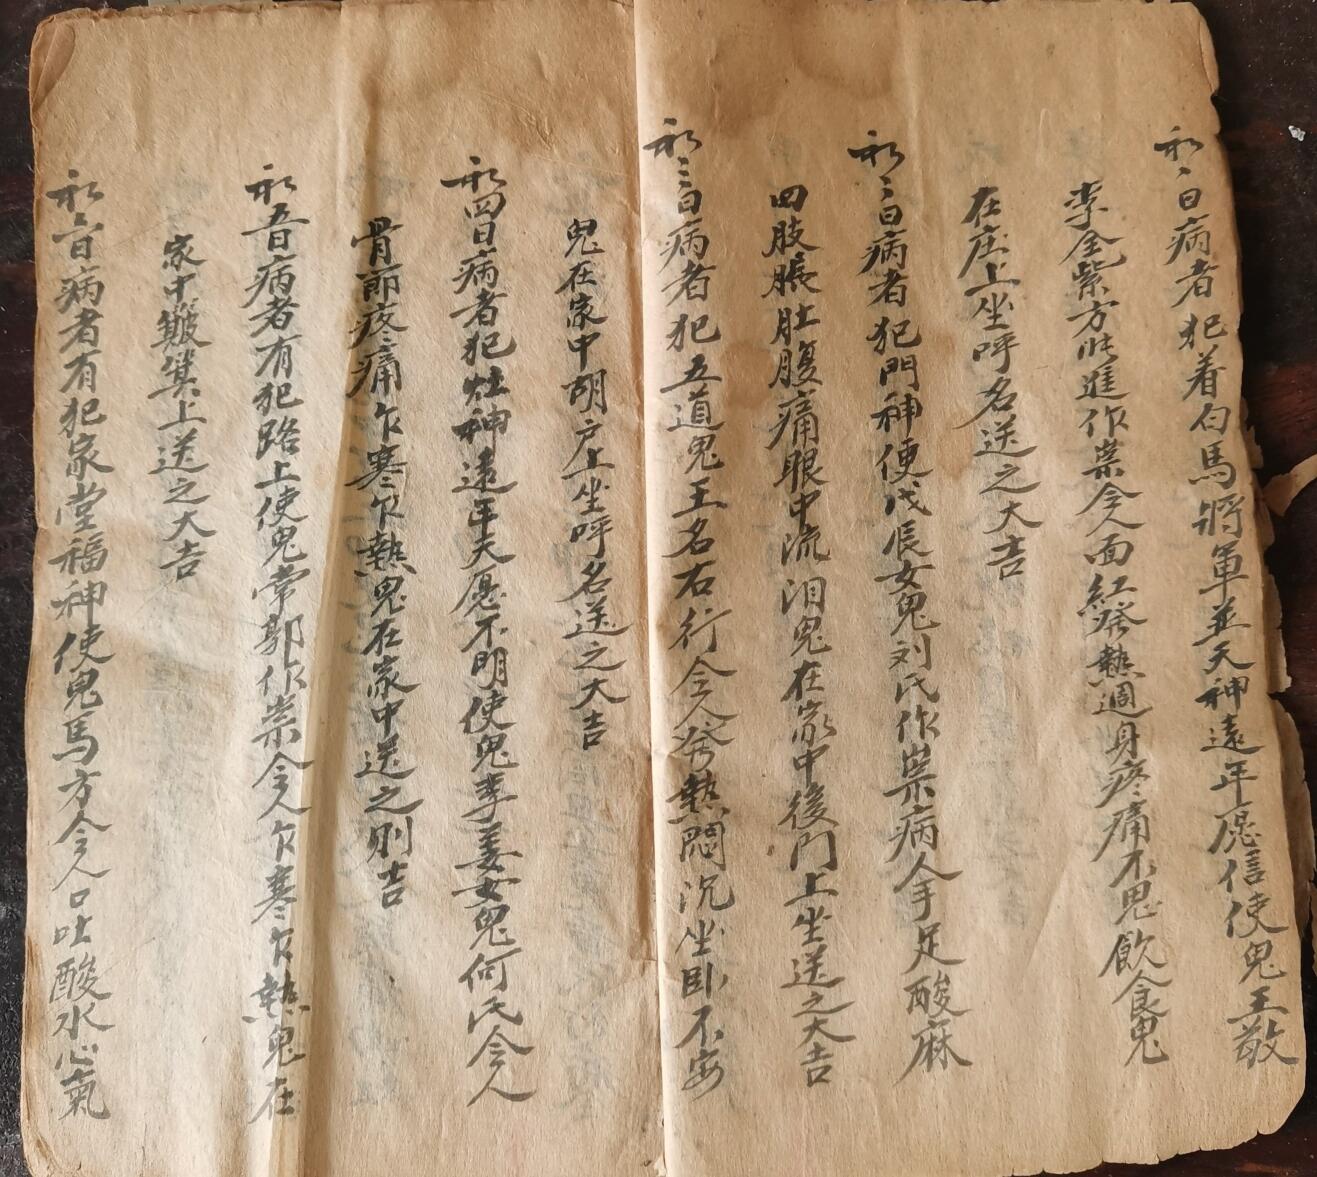 初一日病者犯着白馬將軍並天神遠年愿信使鬼王敬
李金紫方此進作祟令人面紅發熱週身疼痛不思飲食鬼
在庄上坐呼名送之大吉
初二日病者犯門神便戊辰女鬼刘氏作祟病人手足酸麻
四肢脹肚腹痛眼中流泪鬼在家中後門上坐送之大吉
初三日病者犯五道鬼王名右行令人發熱悶沉坐卧不安
鬼在家中胡户上坐呼名送之大吉
初四日病者犯灶神遠年天愿不明使鬼李姜女鬼何氏令人
骨節疼痛乍寒乍熱鬼在家中送之則吉
初五日病者有犯路上使鬼常郭作祟令人乍寒乍熱鬼在
家中雞巢上送之大吉
初六日病者有犯家堂福神使鬼馬方令人口吐酸水心氣